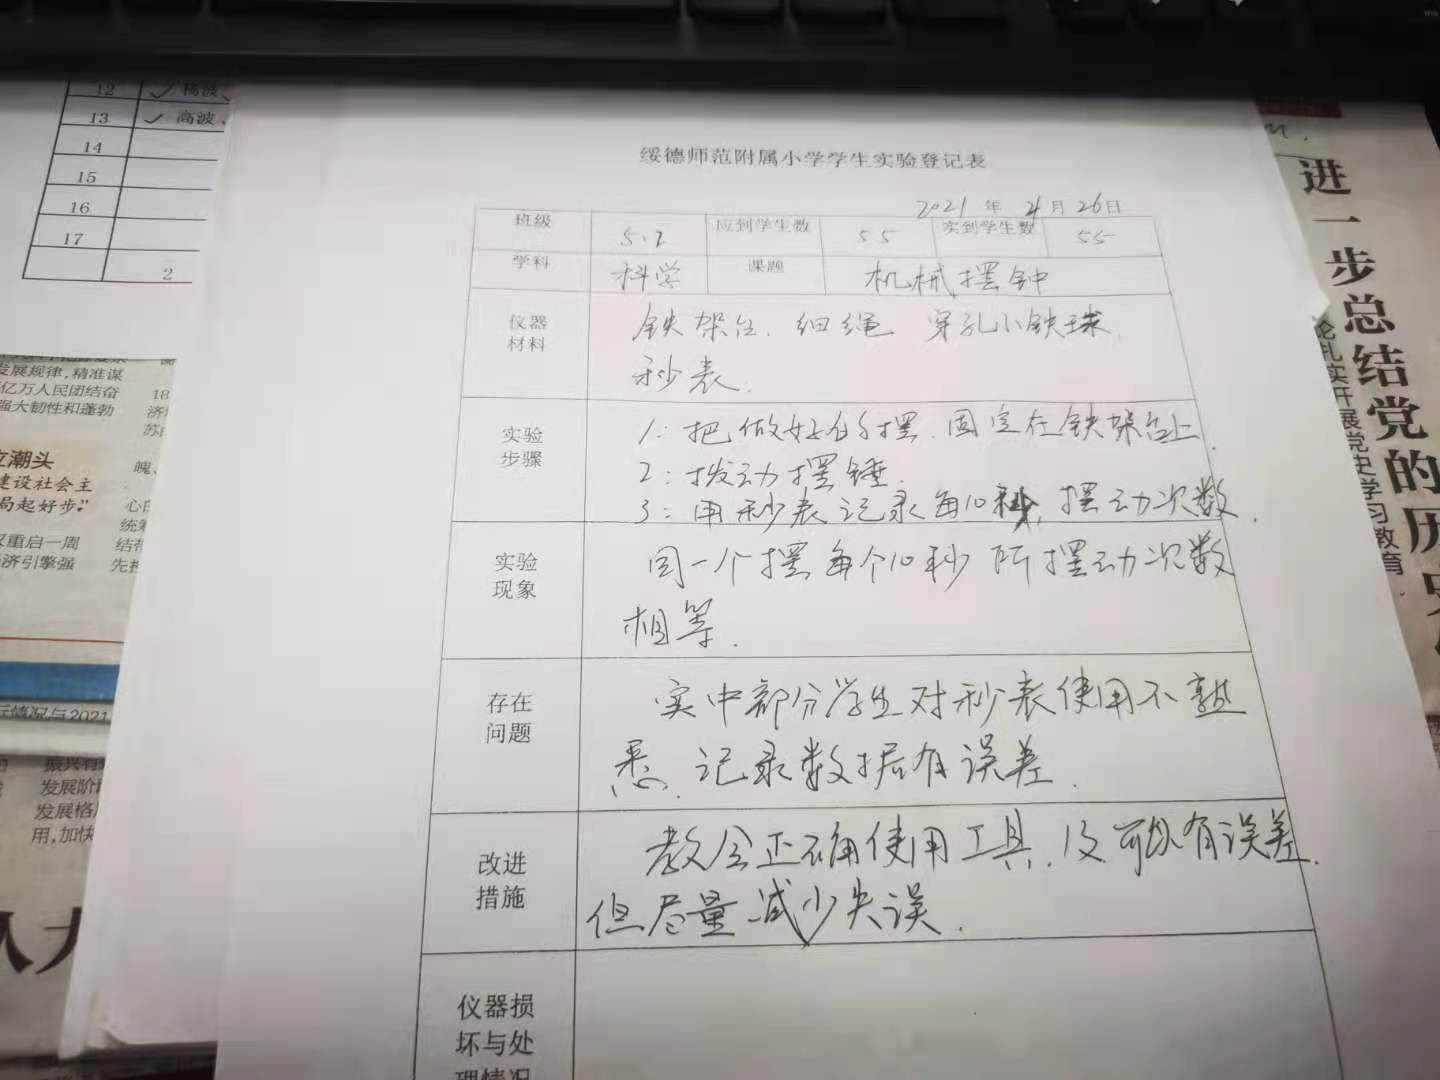 12 ✓ 杨波
13 ✓ 高波
14
15
16
17
2
绥德师范附属小学学生实验登记表
2021 年 4 月 26 日
班级 5.2 应到学生数 55 实到学生数 55
学科 科学 课题 机械摆钟
仪器材料 铁架台、细绳 穿孔小铁球
秒表.
实验步骤 1：把做好的摆、固定在铁架台上.
2：拨动摆锤.
3：用秒表记录每10秒，摆动次数.
实验现象 同一个摆每个10秒所摆动次数
相等.
存在问题 实中部分学生对秒表使用不熟
悉、记录数据有误差.
改进措施 教会正确使用工具、 有误差.
但尽量减少失误.
仪器损
坏与处
理情况
进一步总结党的历史
论扎实开展党史学习教育
发展规律,精准谋
亿万人民团结奋
强大韧性和蓬勃
立潮头
建设社会主
局起好步”
重启一周
济引擎强
情况与2021
发展格
用,加快